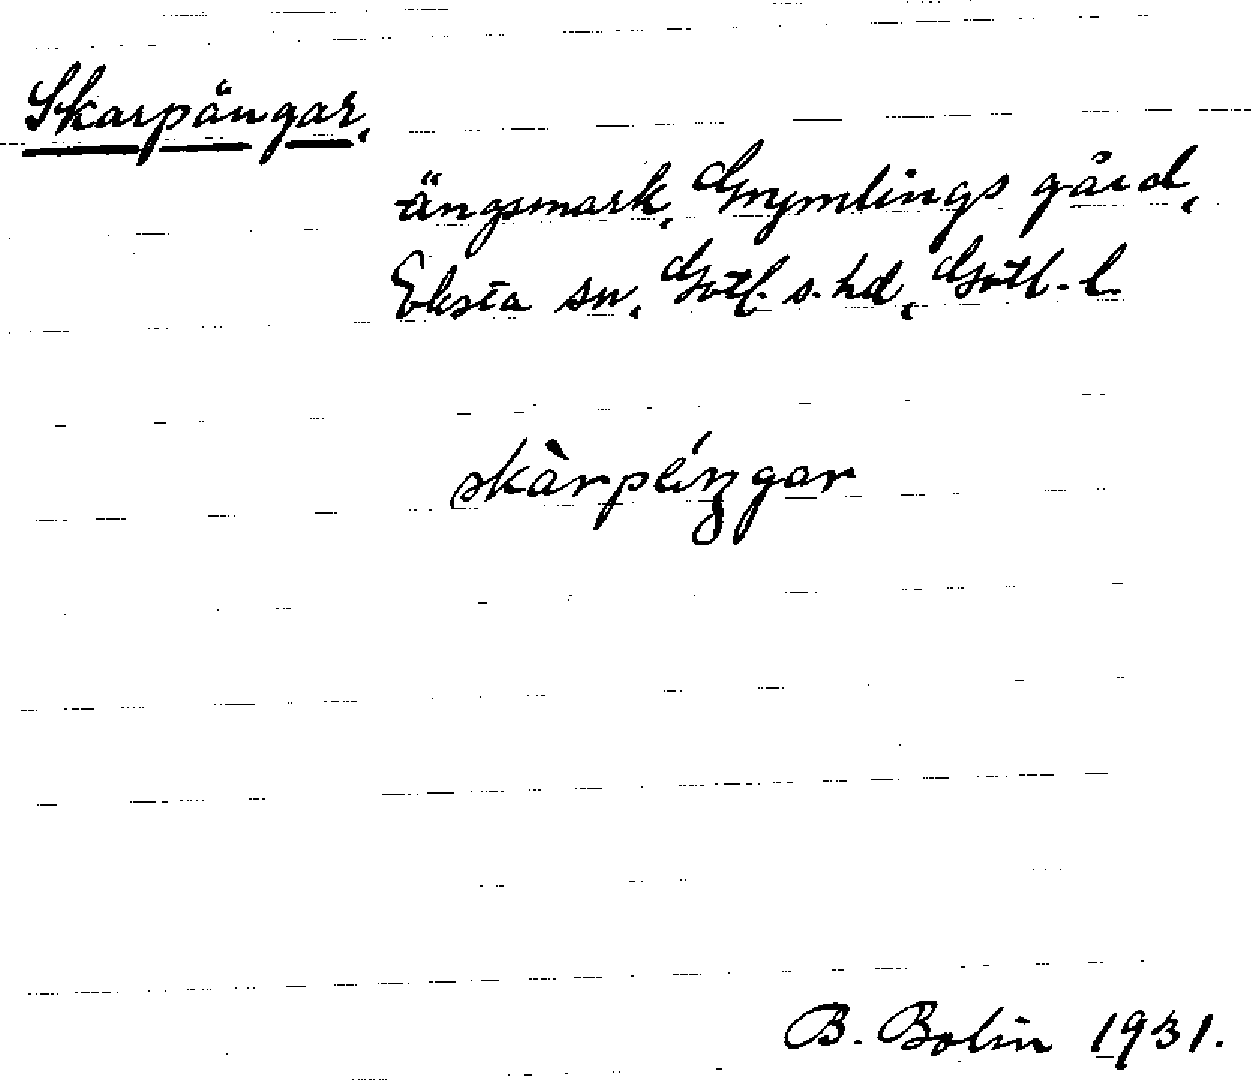 Skarpängar,
ängsmark, Smymlings gård,
Eksta sn, Gotl. s. hd, Gotl. l.
skàrpéŋgar
B. Bolin 1931.